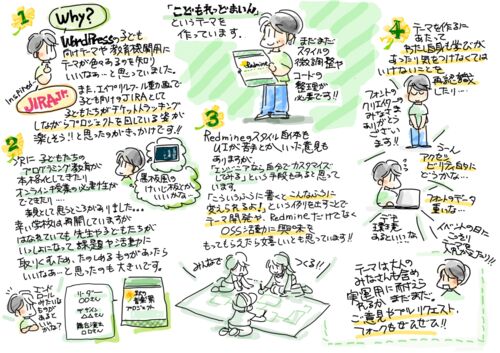 1
Why?
WordPressの子ども
向けテーマや教育機関用に
テーマが色々あるのを知り
いいなあ〜と思っていました。
また、エイプリルフール量の画で
子ども向けのJIRAとして
子どもたちがチケットトラッキング
しながらプロジェクトを回している姿が
楽しそう!と思ったのがきっかけです!!
Inspired
JIRA Jr.
「こどもれっどまいん」
というテーマを
作っています.
Redmine
まだまだ
スタイルの
微調整や
コードの
整理が
必要です!!
2
次に子どもたちの
プログラミング教育が
本格化してきたり
オンライン授業の必要性が
でてきたり…
黒板風の
けいじ板とか
いいかな
幸い学校は再開していますが
はなれていても先生や子どもたちが
いっしょになって課題や活動に
取りくすため、たのしめるものがあったら
いいなあーと思ったのも大きいです。
エンド
ロール
みたいな
ものが
あると
いいな?
リーダー
デザイン
総合演出
プロジェクト
3
Redmineのスタイル自体も
UIが苦手とか難しいご意見も
ありますが、
「エンジニアなら自分でカスタマイズ
してみる」という手段もあると思って
います.
「こういうふうに書くとこんなふうに
変えられるよ!」というイメージを出すことで
テーマ開発や、Redmineだけでなく
OSS活動に興味を
もってもらえたら嬉しいとも思っています!!
みんなで
つくる!!
4
テーマを作るに
あたって
わたし自身も学びが
あったり気をつけなくては
いけないことを
再認識
したり…
フォントの
クリエイターの
みなさま
ありがとう
ござい
ます!!
うーん
アクセシ
ビリティ的に
どうかな…
フォントデータ
重いな…
デモ
環境
あるといいな
イベントの日に
こっそり
テーマを
入れかえたり!!
テーマは大人の
みなさんも含め
実運用に耐えうる
かまだまだ。
ご意見やプルリクエスト、
フォークもぜひぜひ!!